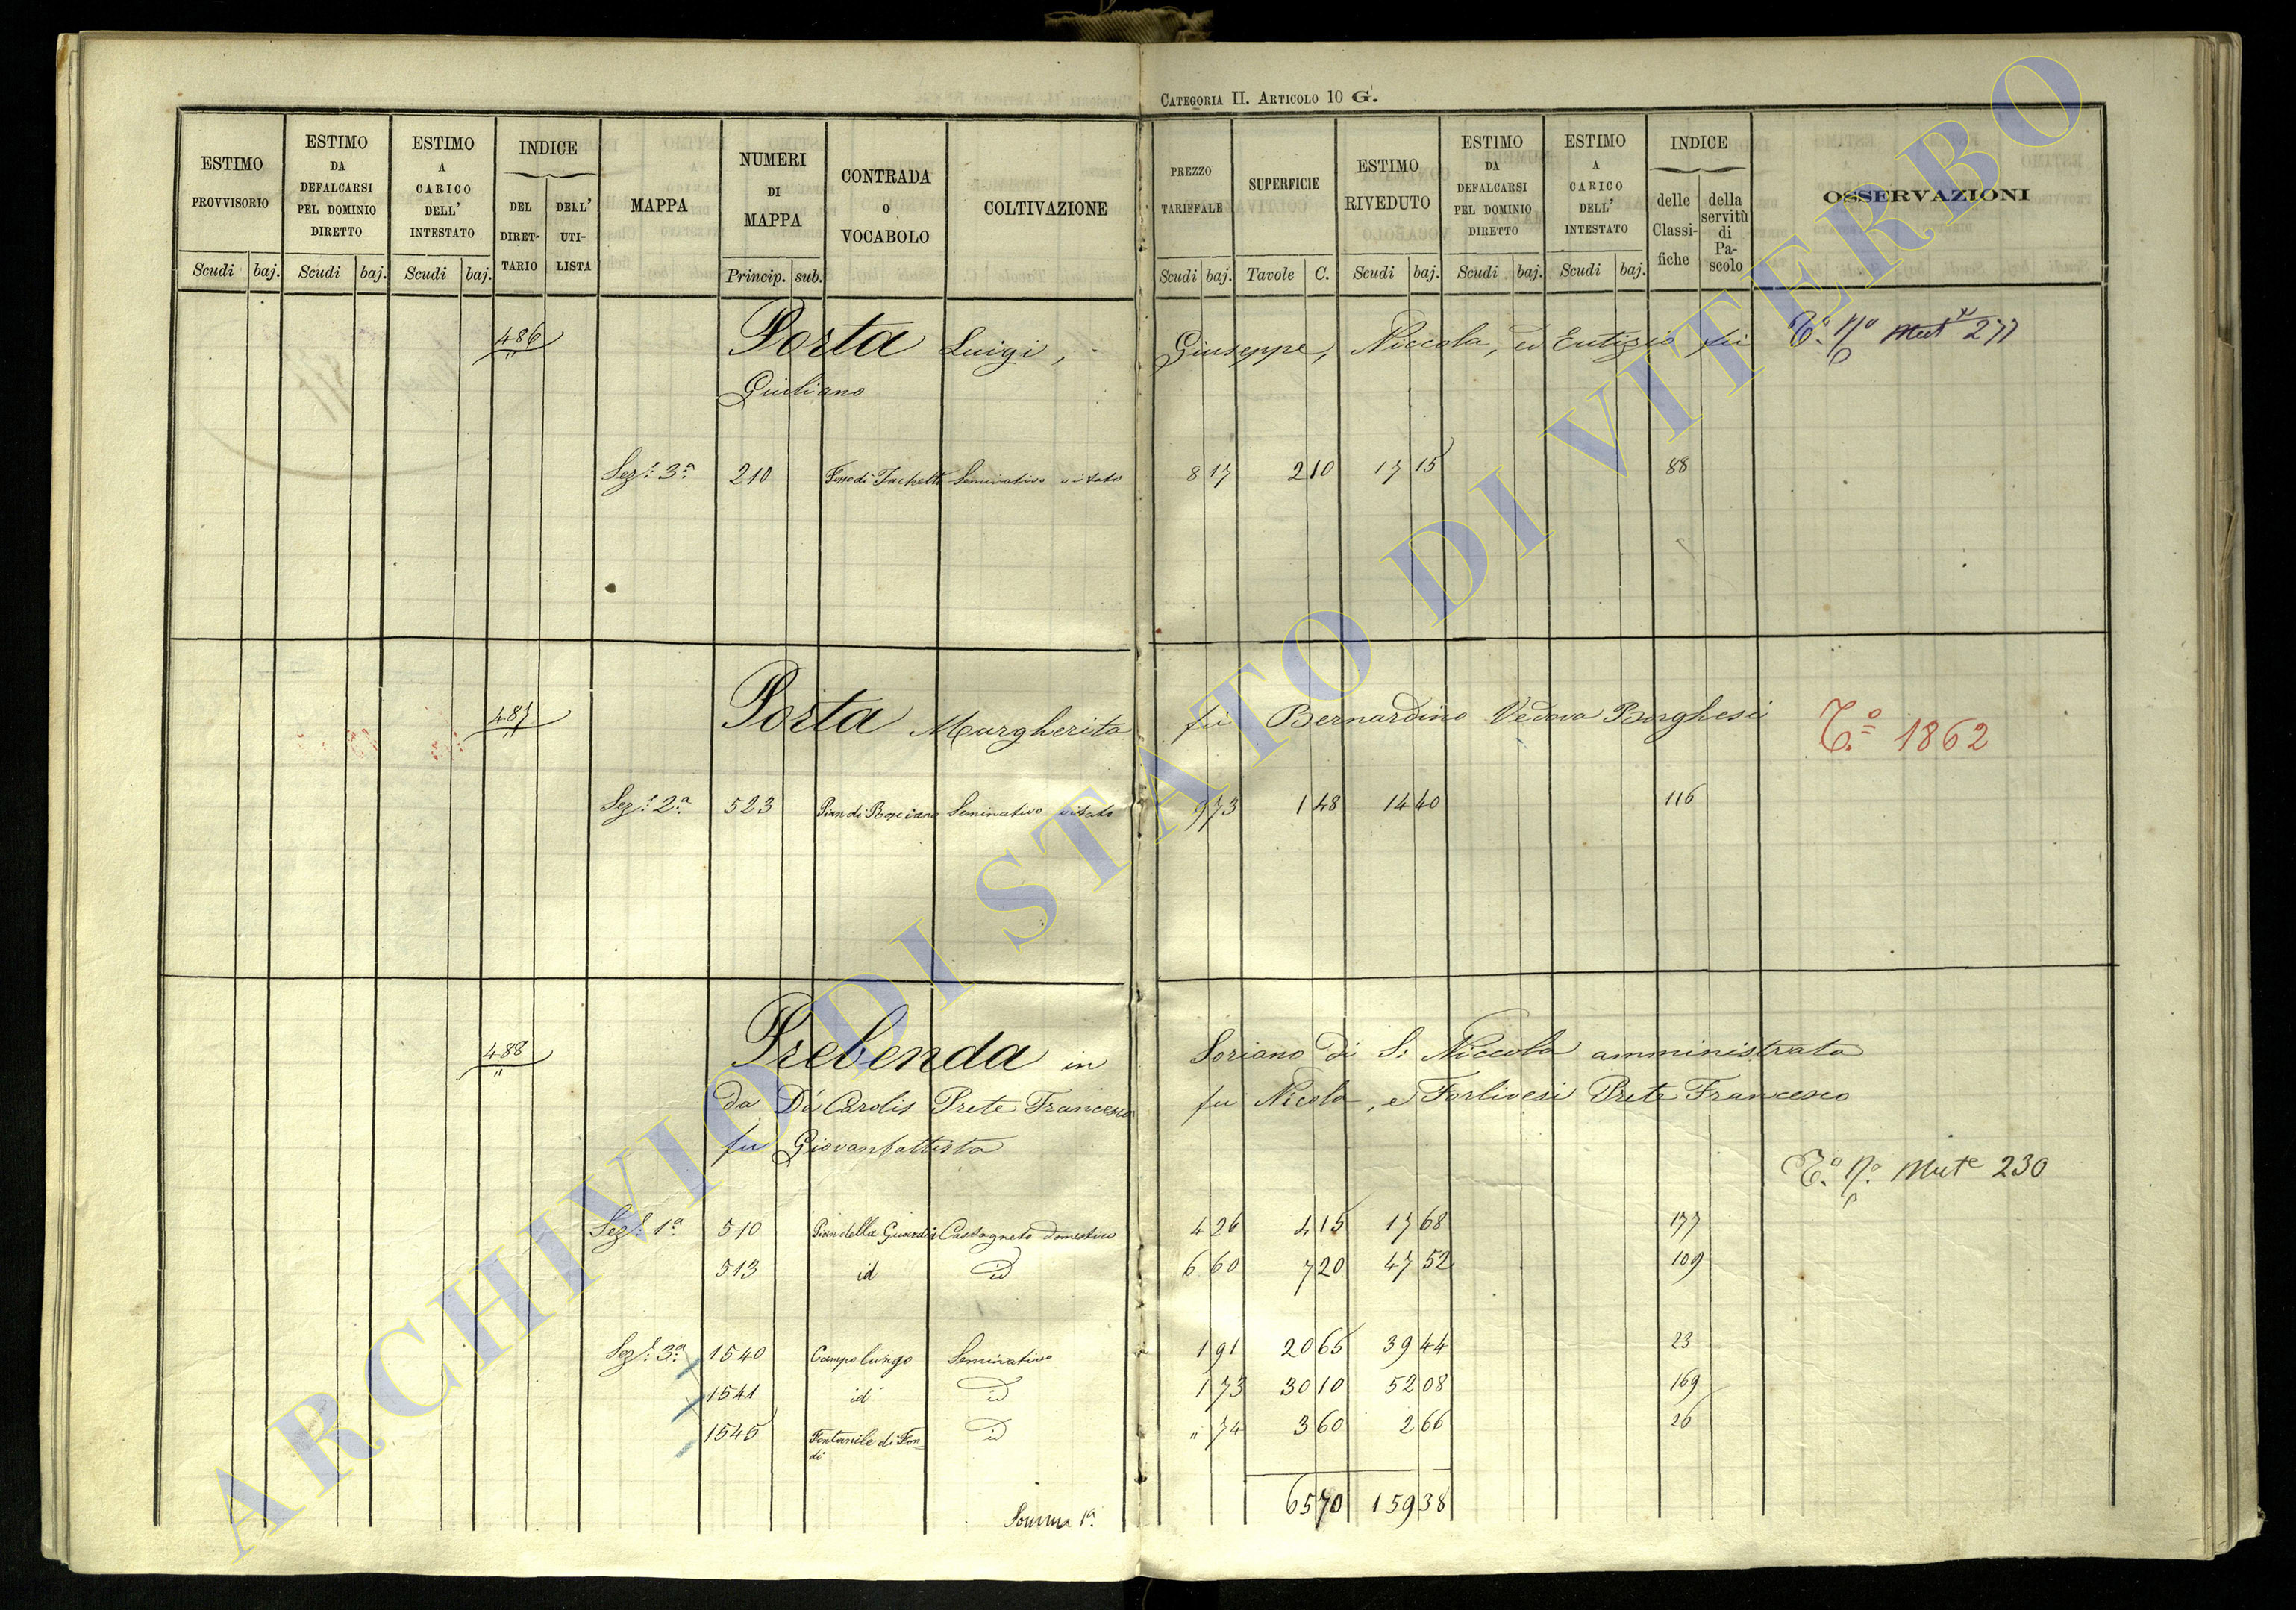 CATEGORIA II. ARTICOLO 10 G.
ESTIMO PROVVISORIO
ESTIMO DA DEFALCARSI PEL DOMINIO DIRETTO
ESTIMO A CARICO DELL' INTESTATO
INDICE
DEL DIRET-TARIO
DELL' UTI-LISTA
MAPPA
NUMERI DI MAPPA
CONTRADA O VOCABOLO
COLTIVAZIONE
PREZZO TARIFFALE
SUPERFICIE
ESTIMO RIVEDUTO
ESTIMO DA DEFALCARSI PEL DOMINIO DIRETTO
ESTIMO A CARICO DELL' INTESTATO
INDICE
delle Classi-fiche
della servitù di Pa-scolo
OSSERVAZIONI
Scudi baj. Scudi baj. Scudi baj. Princip. sub. Scudi baj. Tavole C. Scudi baj. Scudi baj. Scudi baj.
486 Porta Luigi, Giuseppe, Niccola, ed Eutizio fu T.o No Mut 277
Giuliano
Sez: 3a 210 Fosso di Seminativo vitato 8 17 2 10 17 15 88
487 Porta Margherita fu Bernardino Vedova Borghesi T.o 1862
Sez: 2a 523 Seminativo vitato 9 73 1 48 14 40 116
488 Prebenda in Soriano di S: Niccola amministrata
da De Carolis Prete Francesco fu Nicola, e Forlivesi Prete Francesco
fu Giovanbattista
T.o No. Mute 230
Sez: 1a 510 Pian della Guardia Castagneto domestico 4 26 4 15 17 68 177
513 id id 6 60 7 20 47 52 109
Sez: 3a 1540 Campo lungo Seminativo 1 91 20 65 39 44 23
1541 id id 1 73 30 10 52 08 169
1545 Fontanile di Fon-di id " 74 3 60 2 66 26
Somma 1a. 65 70 159 38
ARCHIVIO DI STATO DI VITERBO